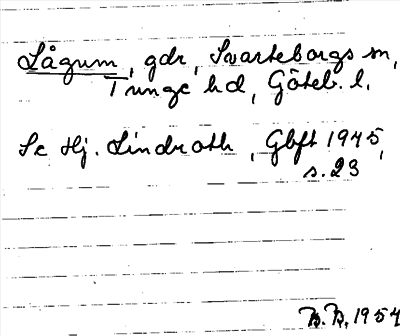 Lågum, gdr, Svarteborgs sn,
Tunge hd, Göteb. l.
Se Hj. Lindroth, Gbft 1945,
s. 23
1954